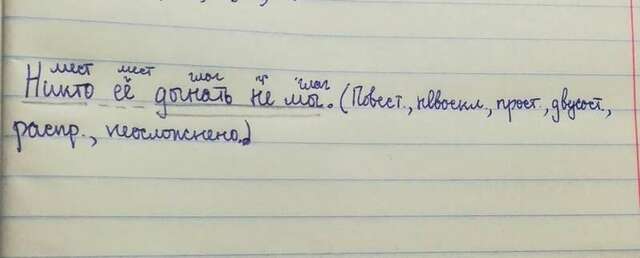 мест мест глаг ч глаг
Никто её догнать не мы. (Повест., невоскл., прост., двусост.,
распр., неосложнено.)